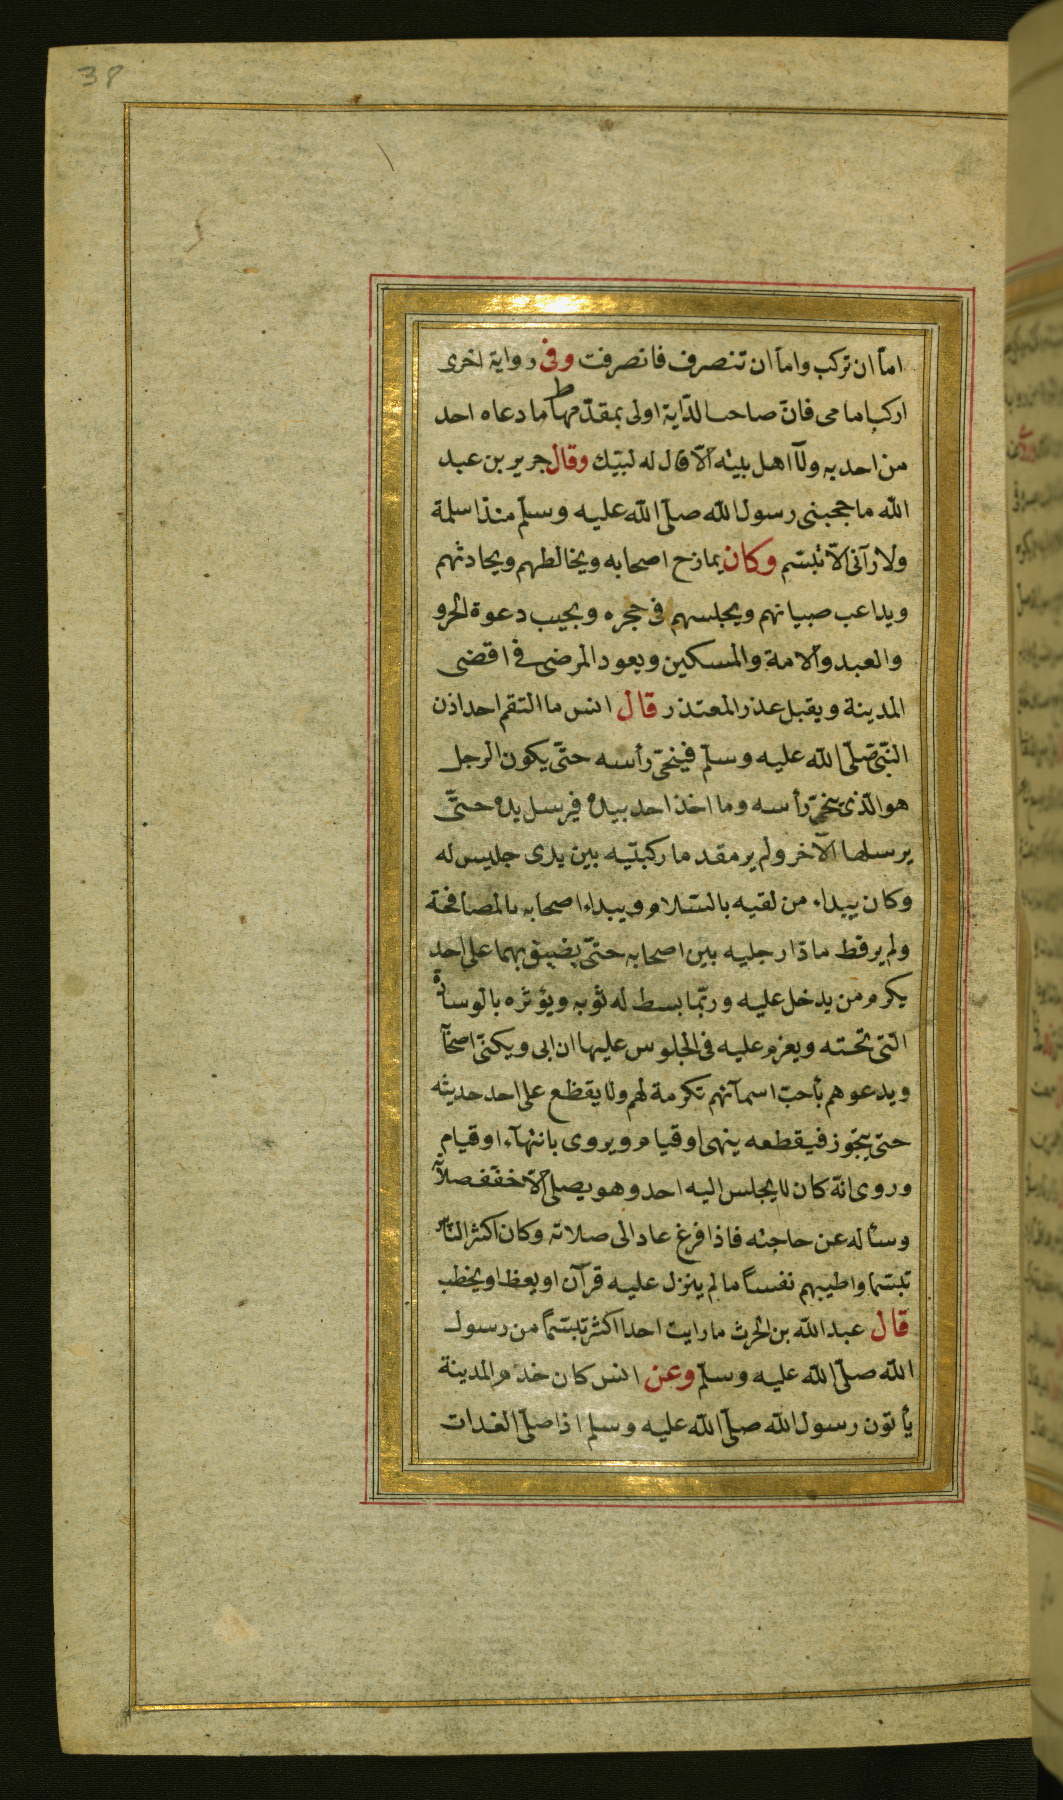 38
اما ان تركب واما ان تنصرف فانصرفت وفى رواية اخرى
اركب امامى فان صاحب الدابة اولى بمقدمها ط ما دعاه احد
من احد به ولا اهل بيته الا قال له لبيك وقال جرير بن عبد
الله ما حجبنى رسول الله صلى الله عليه وسلم منذ اسلمة
ولا رآنى الا تبسم وكان يمازح اصحابه ويخالطهم ويحادثهم
ويداعب صبيانهم ويجلسهم فى حجره ويجيب دعوة الحر و
والعبد والامة والمسكين ويعود المرضى فى اقضى
المدينة ويقبل عذر المعتذر قال انس ما التقم احد اذن
النبى صلى الله عليه وسلم فينحى رأسه حتى يكون الرجل
هو الذى ينحى رأسه وما اخذ احد بيده فيرسل يده حتى
يرسلها الآخر ولم ير مقدما ركبتيه بين يدى جليس له
وكان يبداء من لقيه بالسلام ويبداء اصحابه بالمصافحة
ولم ير قط مادا رجليه بين اصحابه حتى يضيق بهما على احد
يكرم من يدخل عليه وربما بسط له ثوبه ويؤثره بالوسادة
التى تحته ويعزم عليه فى الجلوس عليها ان ابى ويكنى اصحا
ويدعوهم بأحب اسمآئهم تكرمة لهم ولا يقطع على احد حديثه
حتى يتجوز فيقطعه بنهى او قيام ويروى بانتهآء او قيام
وروى انه كان لا يجلس اليه احد وهو يصلى الا خفف صلاته
وسأله عن حاجته فاذا فرغ عاد الى صلاته وكان اكثر الناس
تبسما واطيبهم نفسا ما لم ينزل عليه قرآن او يعظ او يخطب
قال عبد الله بن الحرث ما رايت احدا اكثر تبسما من رسول
الله صلى الله عليه وسلم وعن انس كان خدم المدينة
يأتون رسول الله صلى الله عليه وسلم اذا صلى الغدات